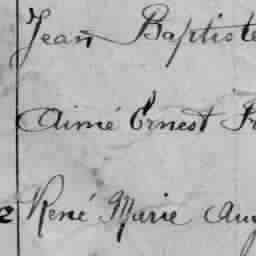 Jean Baptiste
Aimé Ernest Fr
René Marie Aug